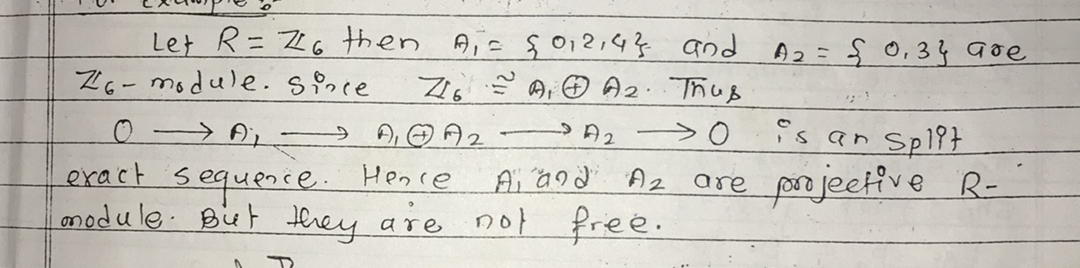 For example :-
Let R = ℤ6 then A1 = { 0,2,4} and A2 = { 0,3} are
ℤ6-module. Since ℤ6 ≅ A1 ⊕ A2. Thus
0 → A1 → A1 ⊕ A2 → A2 → 0 is an split
exact sequence. Hence A1 and A2 are projective R-
module. But they are not free.